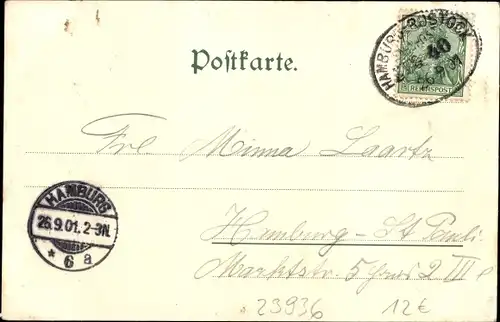 HAMBURG-ROSTOCK
40
REICHSPOST
Postkarte.
Frl. Minna Laartz
HAMBURG
26.9.01. 2-3N.
* 6 a
Hamburg - St Pauli
Marktstr. 5 Haus 2 III
23936 12€